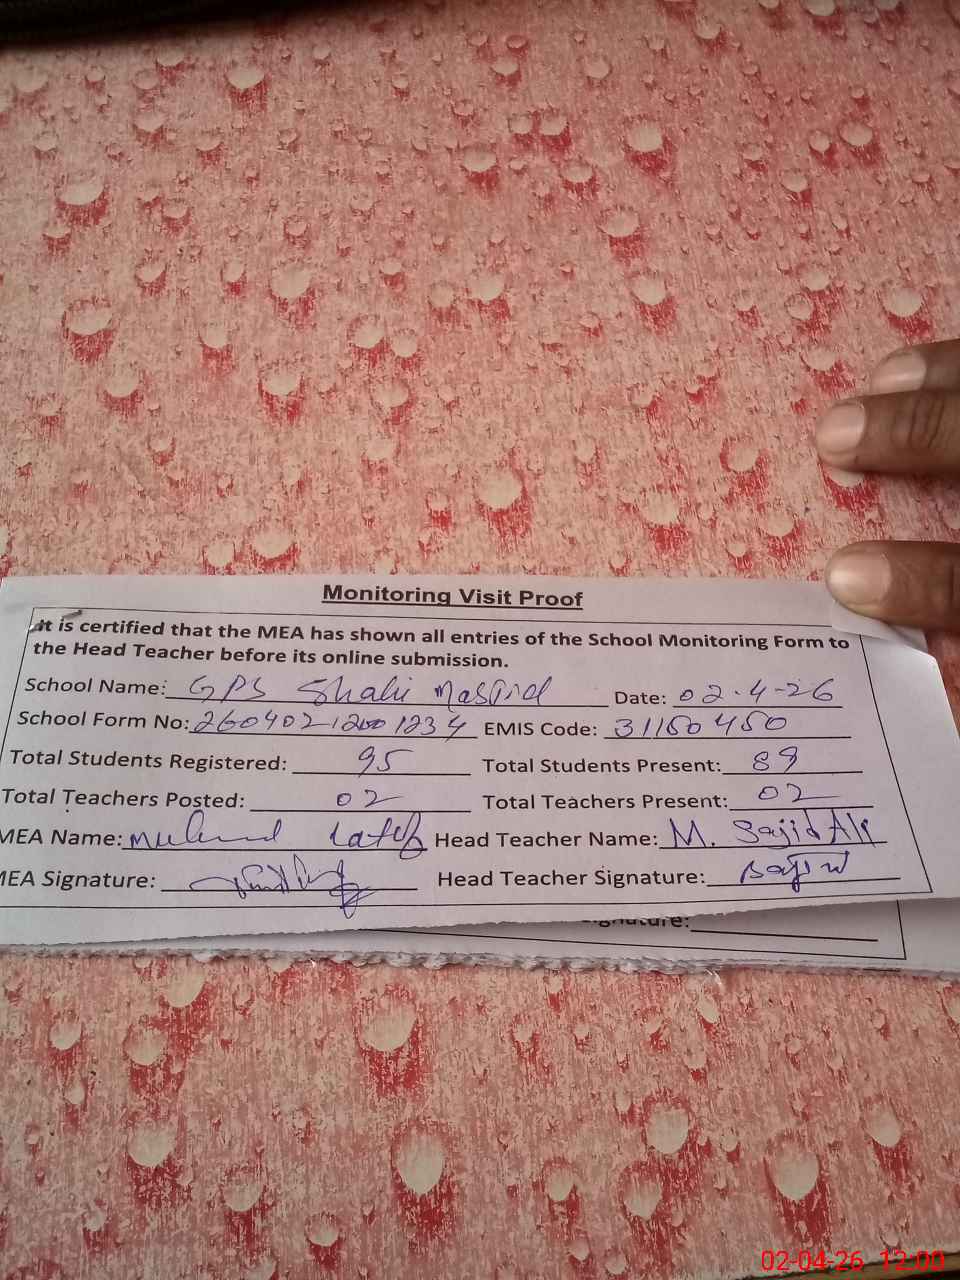 Monitoring Visit Proof
It is certified that the MEA has shown all entries of the School Monitoring Form to
the Head Teacher before its online submission.
School Name: GPS Shahi Masjid Date: 02-4-26
School Form No: EMIS Code: 31150450
Total Students Registered: 95 Total Students Present: 89
Total Teachers Posted: 02 Total Teachers Present: 02
MEA Name: Head Teacher Name: M. Sajid Ali
MEA Signature: Head Teacher Signature: Sajid
Signature:
02-04-26 12:00